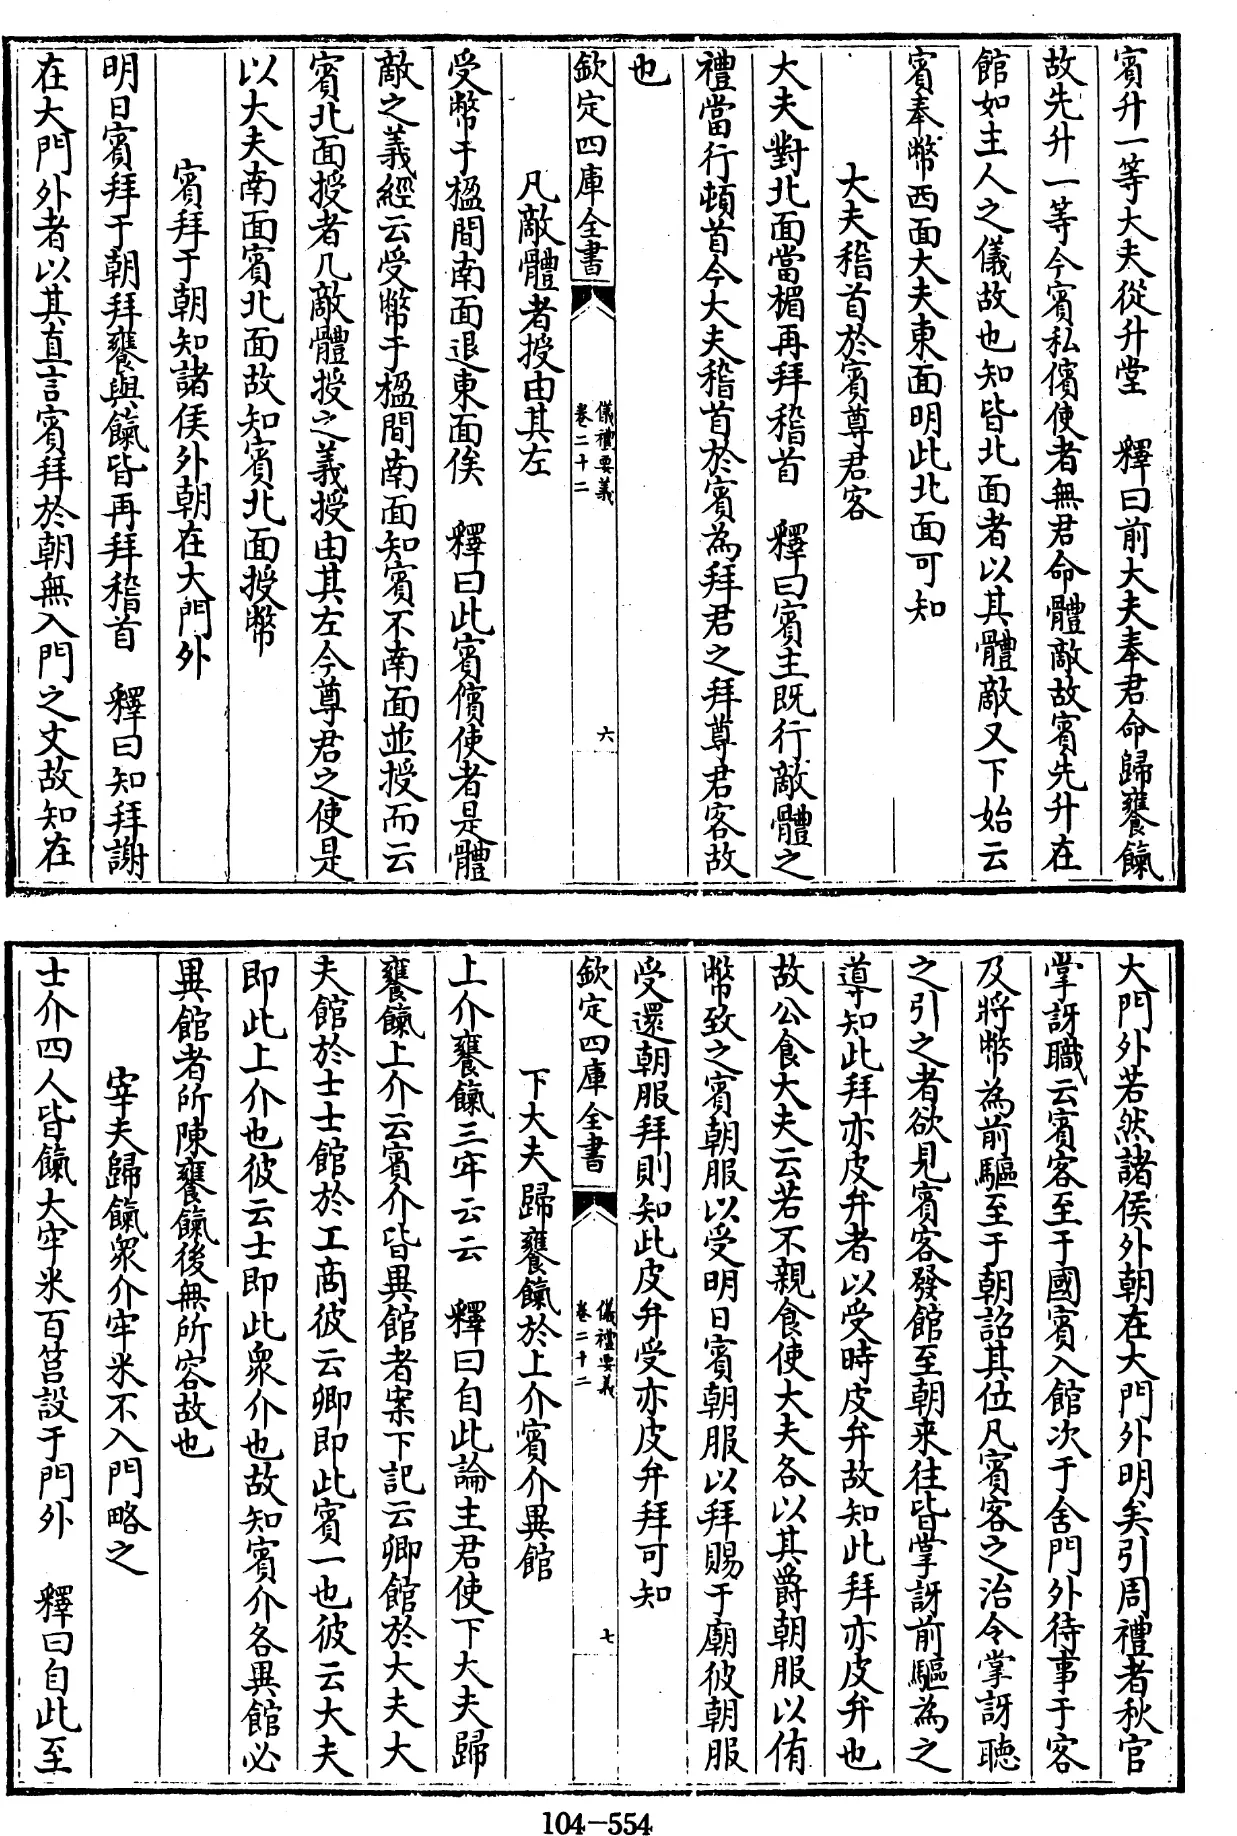 賓升一等大夫從升堂　釋曰前大夫奉君命歸饔餼
故先升一等今賓私儐使者無君命體敵故賓先升在
館如主人之儀故也知皆北面者以其體敵又下始云
賓奉幣西面大夫東面明此北面可知
大夫稽首於賓尊君客
大夫對北面當楣再拜稽首　釋曰賓主既行敵體之
禮當行頓首今大夫稽首於賓為拜君之拜尊君客故
也
欽定四庫全書
儀禮要義
卷二十二
六
凡敵體者授由其左
受幣于楹間南面退東面俟　釋曰此賓儐使者是體
敵之義經云受幣于楹間南面知賓不南面並授而云
賓北面授者凡敵體授之義授由其左今尊君之使是
以大夫南面賓北面故知賓北面授幣
賓拜于朝知諸侯外朝在大門外
明日賓拜于朝拜饔與餼皆再拜稽首　釋曰知拜謝
在大門外者以其直言賓拜於朝無入門之文故知在
大門外若然諸侯外朝在大門外明矣引周禮者秋官
掌訝職云賓客至于國賓入館次于舍門外待事于客
及將幣為前驅至于朝詔其位凡賓客之治令掌訝聽
之引之者欲見賓客發館至朝來往皆掌訝前驅為之
導知此拜亦皮弁者以受時皮弁故知此拜亦皮弁也
故公食大夫云若不親食使大夫各以其爵朝服以侑
幣致之賓朝服以受明日賓朝服以拜賜于廟彼朝服
受還朝服拜則知此皮弁受亦皮弁拜可知
欽定四庫全書
儀禮要義
卷二十二
七
下大夫歸饔餼於上介賓介異館
上介饔餼三牢云云　釋曰自此論主君使下大夫歸
饔餼上介云賓介皆異館者案下記云卿館於大夫大
夫館於士士館於工商彼云卿即此賓一也彼云大夫
即此上介也彼云士即此衆介也故知賓介各異館必
異館者所陳饔餼後無所容故也
宰夫歸餼衆介牢米不入門略之
士介四人皆餼大牢米百筥設于門外　釋曰自此至
104-554